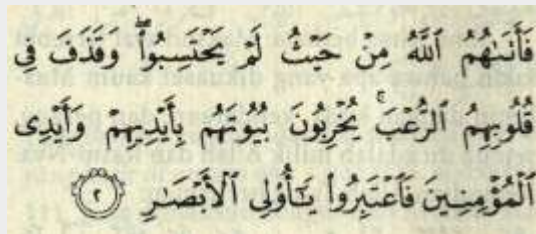 فَأَتَىٰهُمُ اللَّهُ مِنْ حَيْثُ لَمْ يَحْتَسِبُوا۟ ۖ وَقَذَفَ فِى
قُلُوبِهِمُ الرُّعْبَ ۚ يُخْرِبُونَ بُيُوتَهُم بِأَيْدِيهِمْ وَأَيْدِى
الْمُؤْمِنِينَ فَاعْتَبِرُوا۟ يَٰٓأُو۟لِى الْأَبْصَٰرِ ٢